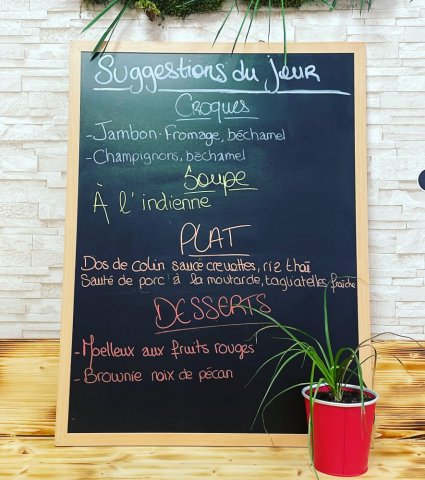 Suggestions du jour
Croques
-Jambon-Fromage, béchamel
-Champignons, béchamel
Soupe
À l'indienne
PLAT
Dos de colin sauce crevettes, riz thaï
Sauté de porc à la moutarde, tagliatelles fraîche
DESSERTS
-Moelleux aux fruits rouges
-Brownie noix de pécan